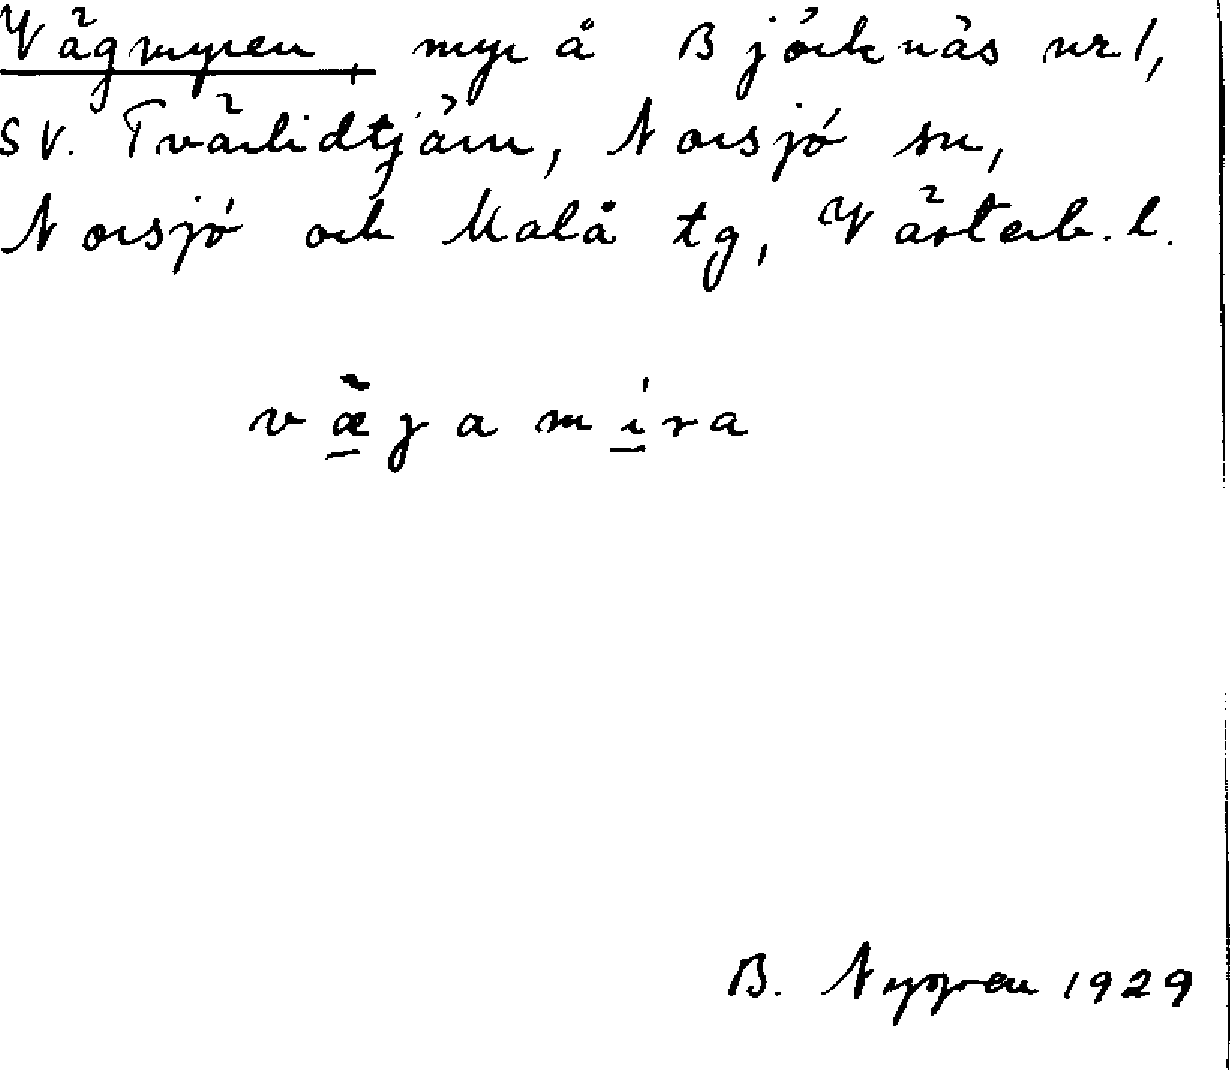 Vägmyren, myr å Björknäs nr 1,
SV. Tvärlidtjärn, Norsjö sn,
Norsjö och Malå tg, Västerb. l.
væ̀gamíra
B. Nygren 1929